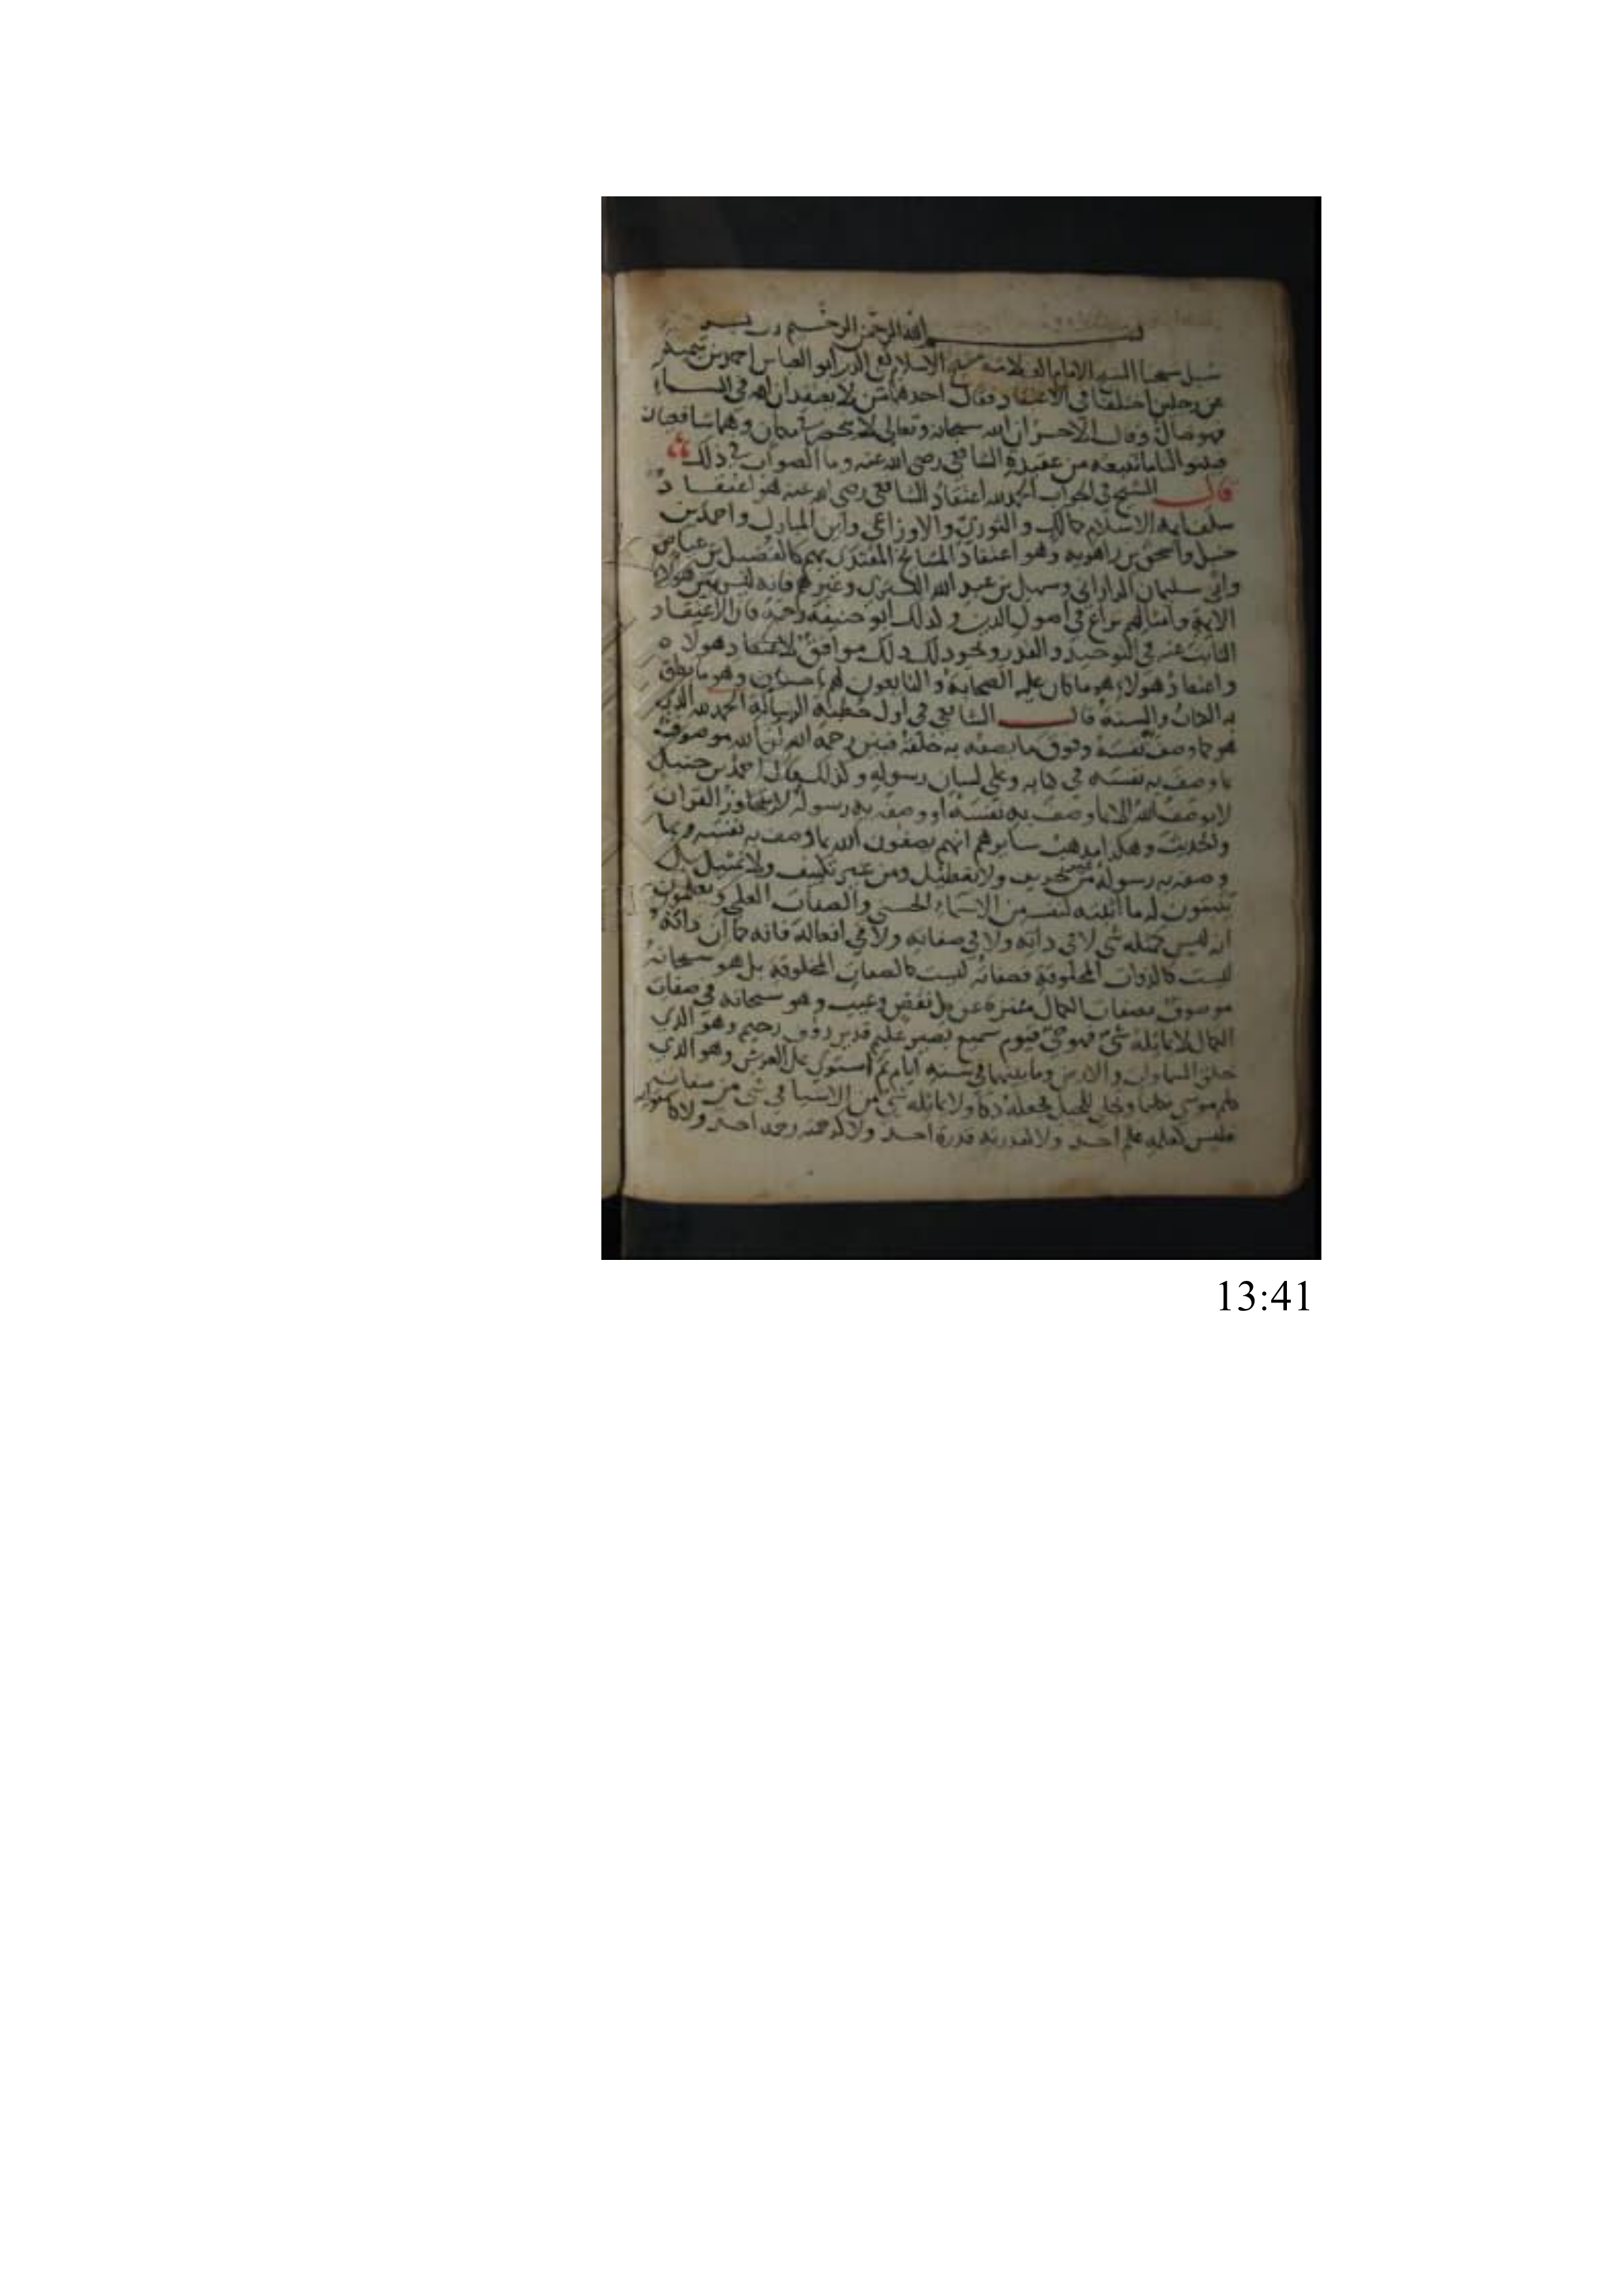 بسم الله الرحمن الرحيم رب يسر
سئل شيخنا الشيخ الامام العلامة شيخ الاسلام تقي الدين ابو العباس احمد بن تيمية
عن رجلين اختلفا في الاعتقاد فقال احدهما من لا يعتقد ان الله في السماء
فهو ضال وقال الاخر ان الله سبحانه وتعالى لا ينحصر في مكان وهما شافعيان
فبينوا لنا ما نتبعه من عقيدة الشافعي رضي الله عنه وما الصواب في ذلك
قال الشيخ في الجواب الحمد لله اعتقاد الشافعي رضي الله عنه هو اعتقاد
سلف ايمة الاسلام كمالك والثوري والاوزاعي وابن المبارك واحمد بن
حنبل واسحق بن راهويه وهو اعتقاد المشايخ المقتدى بهم كالفضيل بن عياض
وابي سليمان الداراني وسهل بن عبد الله التستري وغيرهم فانه ليس بين هولا
الايمة وامثالهم نزاع في اصول الدين وكذلك ابو حنيفة رحمه فان الاعتقاد
الثابت عنه في التوحيد والقدر ونحو ذلك موافق لاعتقاد هولاه
واعتقاد هولاء هو ما كان عليه الصحابة والتابعون لهم باحسان وهو ما نطق
به الكتاب والسنة قال الشافعي في اول خطبة الرسالة الحمد لله الذي
هو كما وصف نفسه وفوق ما يصفه به خلقه فبين رحمه الله ان الله موصوف
بما وصف به نفسه في كتابه وعلى لسان رسوله وكذلك قال احمد بن حنبل
لا يوصف الله الا بما وصف به نفسه او وصفه به رسوله لا يتجاوز القران
والحديث وهكذا مذهب سايرهم انهم يصفون الله بما وصف به نفسه وبما
وصفه به رسوله من غير تحريف ولا تعطيل ومن غير تكييف ولا تمثيل بل
يثبتون له ما اثبته لنفسه من الاسماء الحسنى والصفات العلى ويعلمون
انه ليس كمثله شي لا في ذاته ولا في صفاته ولا في افعاله فانه كما ان ذاته
ليست كالذوات المخلوقة فصفاته ليست كالصفات المخلوقة بل هو سبحانه
موصوف بصفات الكمال منزه عن كل نقص وعيب وهو سبحانه في صفات
الكمال لا يماثله شي فهو حي قيوم سميع بصير عليم قدير رؤف رحيم وهو الذي
خلق السماوات والارض وما بينهما في ستة ايام ثم استوى على العرش وهو الذي
كلم موسى تكليما وتجلى للجبل فجعله دكا ولا يماثله شي من الاشيا في شي من صفاته
فليس كعلمه علم احد ولا كقدرته قدرة احد ولا كرحمته رحمة احد ولا كاستوايه
13:41